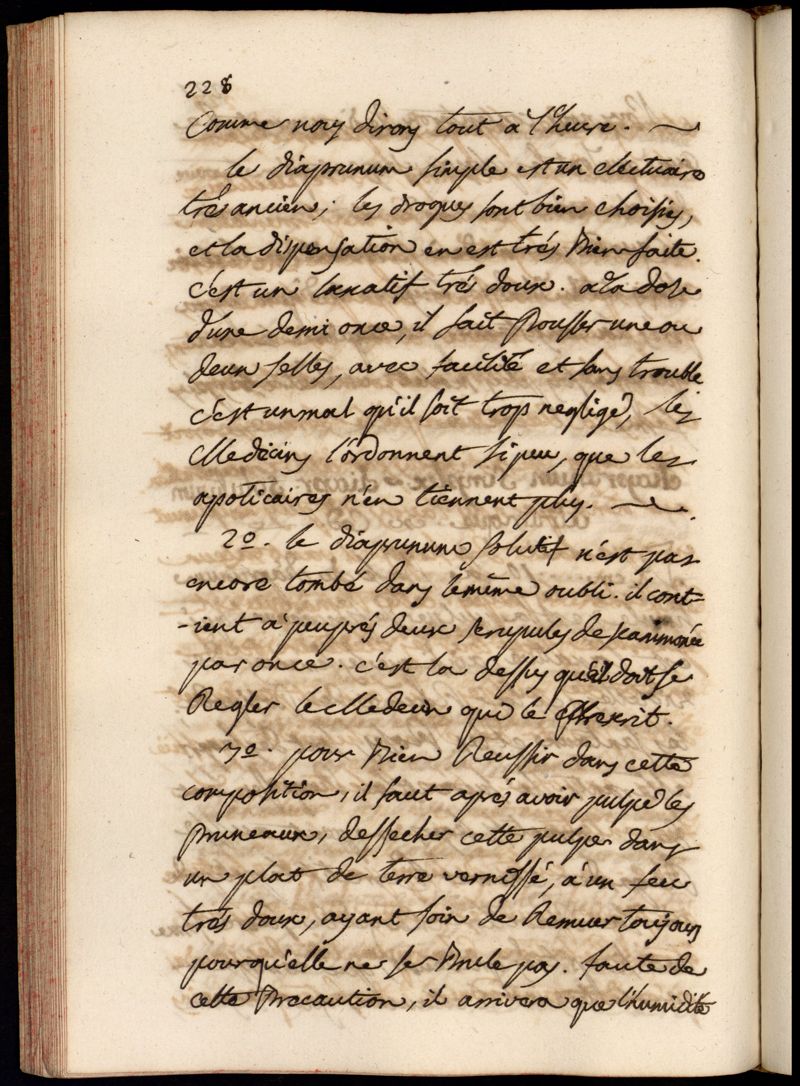 228
Comme nous dirons tout a l'heure. ~
le diaprunum simple est un electuaire
tres ancien; les drogues sont bien choisies,
et la dispensation en est trés Bien faite.
c'est un laxatif trés doux. a la dose
d'une demi once, il fait Pousser une ou
deux selles, avec facilité et sans trouble
c'est un mal qu'il soit trop negligé, les
Medecins l'ordonnent si peu, que les
apoticaires n'en tiennent plus. ~
2º. le diaprunum solutif n'est pas
encore tombé dans le même oubli. il cont=
-ient a peuprés deux scrupules de scammonée
par once. c'est la dessus qu'il doit se
Regler le Medecin qui le Prescrit.
3º. pour Bien Reussir dans cette
composition, il faut aprés avoir pulpé les
Pruneaux, dessecher cette pulpe dans
un plat de terre vernissé, a un feu
trés doux, ayant soin de Remuer toujours
pour qu'elle ne se Brule pas. faute de
cette Precaution, il arrivera que l'humidité